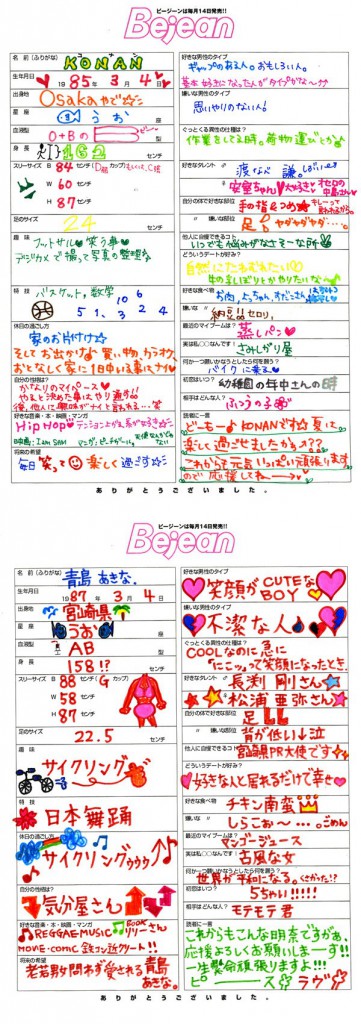 ビージーンは毎月14日発売!!
Bejean
名前(ふりがな)
KONAN
生年月日
1985年3月4日
出身地
Osakaやで
星座
うお
血液型
O+BのO
身長
162
センチ
スリーサイズ
B 84 センチ(D カップ)
W 60 センチ
H 87 センチ
足のサイズ
24
センチ
趣味
フットサル 笑う事
デジカメで撮って写真の整理
特技
バスケット、数学
休日の過ごし方
家のお片付け
そしてお出かけ 買い物、カラオケ、
おとなしく家に1日中いる事はナイ
自分の性格は?
かなりのマイペース
やると決めた事はやり通す!!
後、他人に興味がナイと言われる…笑
好きな音楽・本・映画・マンガ
HipHop
映画:I am SAM
将来の希望
毎日笑って楽しく過ごす
好きな男性のタイプ
ギャップのある人。おもしろい人。
嫌いな男性のタイプ
思いやりのない人
ぐっとくる男性の仕種は?
作業をしてる時。荷物運びとか
好きなタレント
渡なべ謙。
安室ちゃん
自分の体で好きな部位
手の指&つめ
〃 嫌いな部位
足 ヤダヤダヤダ…。
他人に自慢できるコト
いつでも悩みがなさそーな所
どういうデートが好み?
自然にたわむれたい
牛の乳しぼりとかやりたいな
好きな食べ物
お肉、
嫌いな 〃
納豆!!セロリ、
最近のマイブームは?
蒸しパン
実は私○○なんです!
さみしがり屋
何かー つ願いかなうとしたら何を願う?
バイクに乗る
初恋はいつ?
幼稚園の年中さんの時
相手はどんな人?
ふつうの子
読者に一言
どーもー KONANです 夏は
楽しく過ごせましたかぁ???
これからも元気いっぱい頑張ります
ので応援してねー
ありがとうございました。
ビージーンは毎月14日発売!!
Bejean
名前(ふりがな)
青島あきな.
生年月日
1987年3月4日
出身地
宮崎県
星座
うお
血液型
AB
身長
158!?
センチ
スリーサイズ
B 88 センチ(G カップ)
W 58 センチ
H 87 センチ
足のサイズ
22.5
センチ
趣味
サイクリング
特技
日本舞踊
休日の過ごし方
サイクリングゥゥゥ
自分の性格は?
気分屋さん
好きな音楽・本・映画・マンガ
REGGAE・MUSIC BOOK リリーさん
MOVIE・COMIC 鉄コン近クリート!!
将来の希望
老若男女問わず愛される青島あきな。
好きな男性のタイプ
笑顔がCUTEなBOY
嫌いな男性のタイプ
不潔な人
ぐっとくる男性の仕種は?
COOLなのに急に
"にこっ"って笑顔になったとき。
好きなタレント
長渕剛さん
松浦亜弥さん
自分の体で好きな部位
足
〃 嫌いな部位
背が低い↓泣
他人に自慢できるコト
宮崎県PR大使です
どういうデートが好み?
好きな人と居れるだけで幸せ
好きな食べ物
チキン南蛮
嫌いな 〃
しらこぉ〜…。ごめん
最近のマイブームは?
マンゴージュース
実は私○○なんです!
古風な女
何かー つ願いかなうとしたら何を願う?
世界が平和になる。
初恋はいつ?
5ちゃい!!!!
相手はどんな人?
モテモテ君
読者に一言
これからもこんな明奈ですがぁ、
応援よろしくお願いしまーす!!
一生懸命頑張りますよ!!!
ピース ラヴ
ありがとうございました。